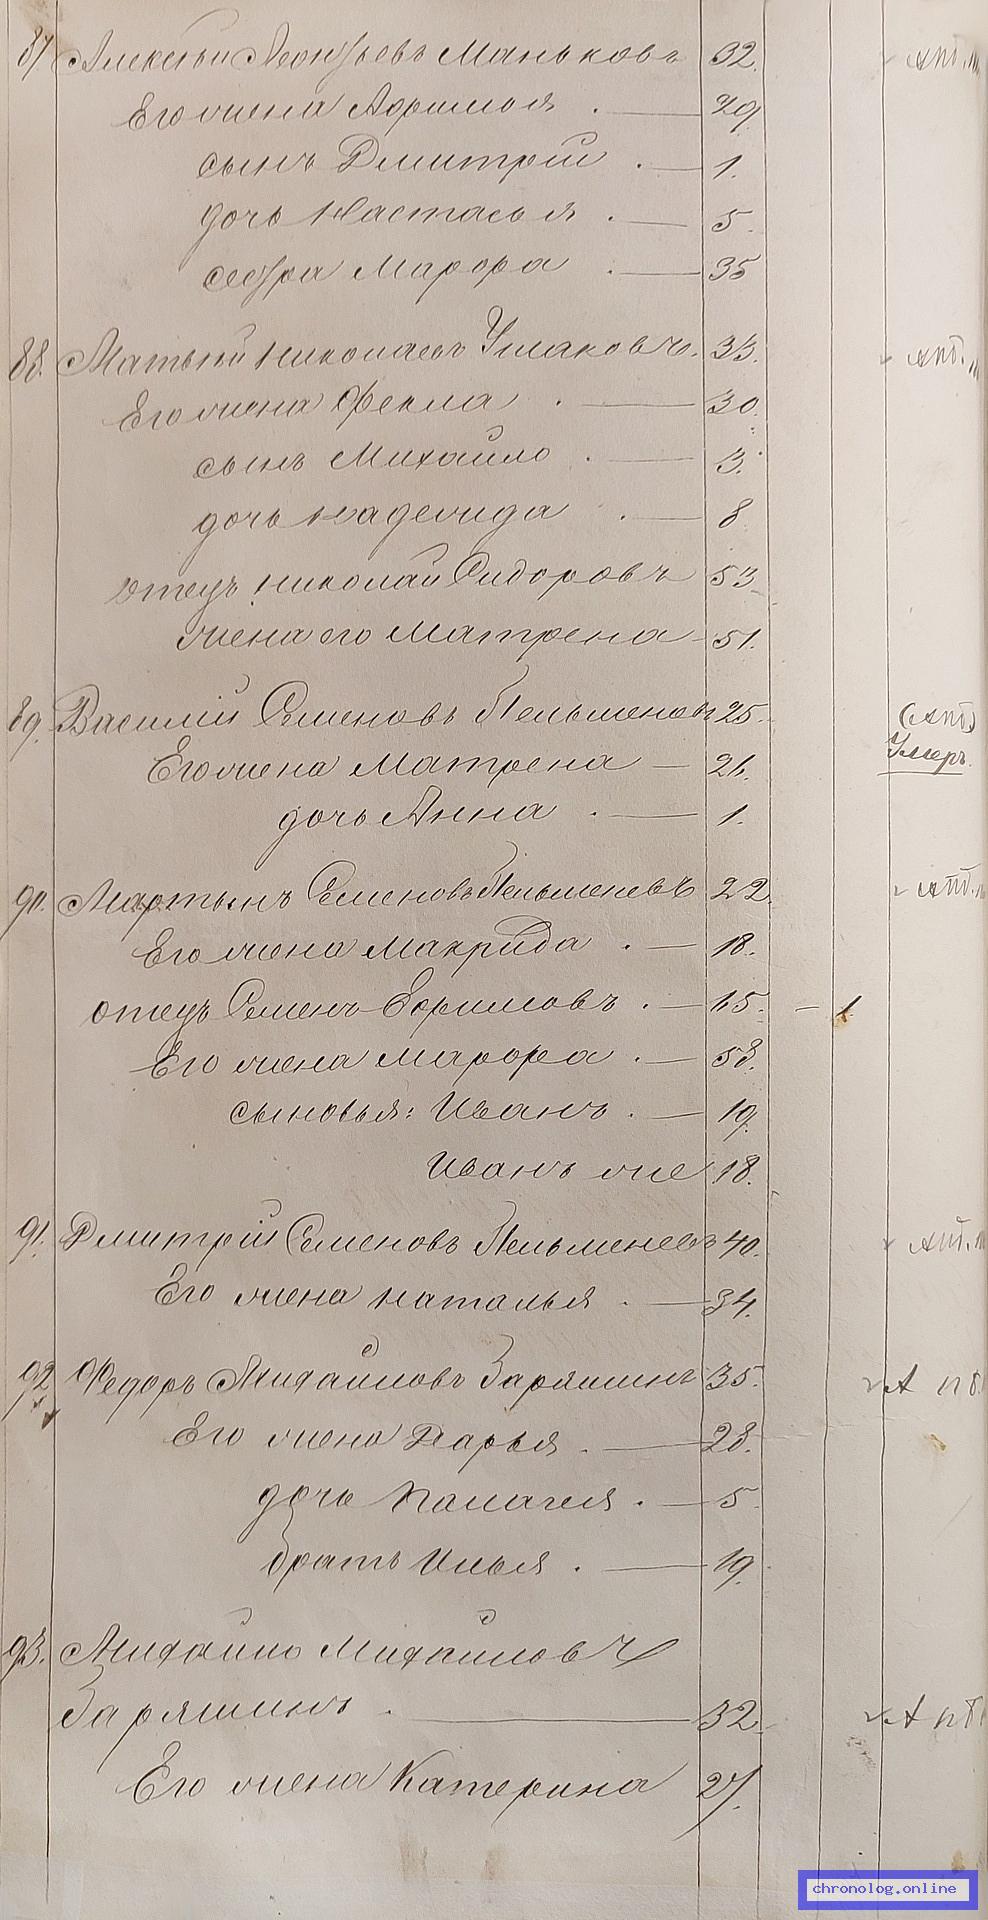 87 Алексѣй Леонтьевъ Маньковъ 32.
Его жена Афимья . — 29
сынъ Дмитрій . — 1.
дочь Настасья . — 5.
сестра Марфа . — 35
88. Матвѣй Николаевъ Ушаковъ. 33.
Его жена Фекла . — 30.
сынъ Михайло . — 3.
дочь Надежида . — 8
отецъ Николай Сидоровъ 53
жена его Матрена - 51.
89. Василій Семеновъ Пельменовъ 25.
Умеръ.
Его жена Матрена — 21.
дочь Анна . — 1.
90. Мартынъ Семеновъ Пельменевъ 22
Его жена Макрида . — 18.
отецъ Семенъ Ефимовъ . — 65. — 1.
Его жена Марфа . — 58.
сыновья: Иванъ . — 19.
Иванъ же 18.
91. Дмитрій Семеновъ Пельменевъ 40.
Его жена Наталья . — 34.
92 Федоръ Михайловъ Заряшинъ 35.
Его жена Дарья . — 28.
дочь Палагея . — 5.
братъ Илья . — 19.
93. Михайло Михайловъ
Заряшинъ . — 32.
Его жена Катерина 27.
chronolog.online